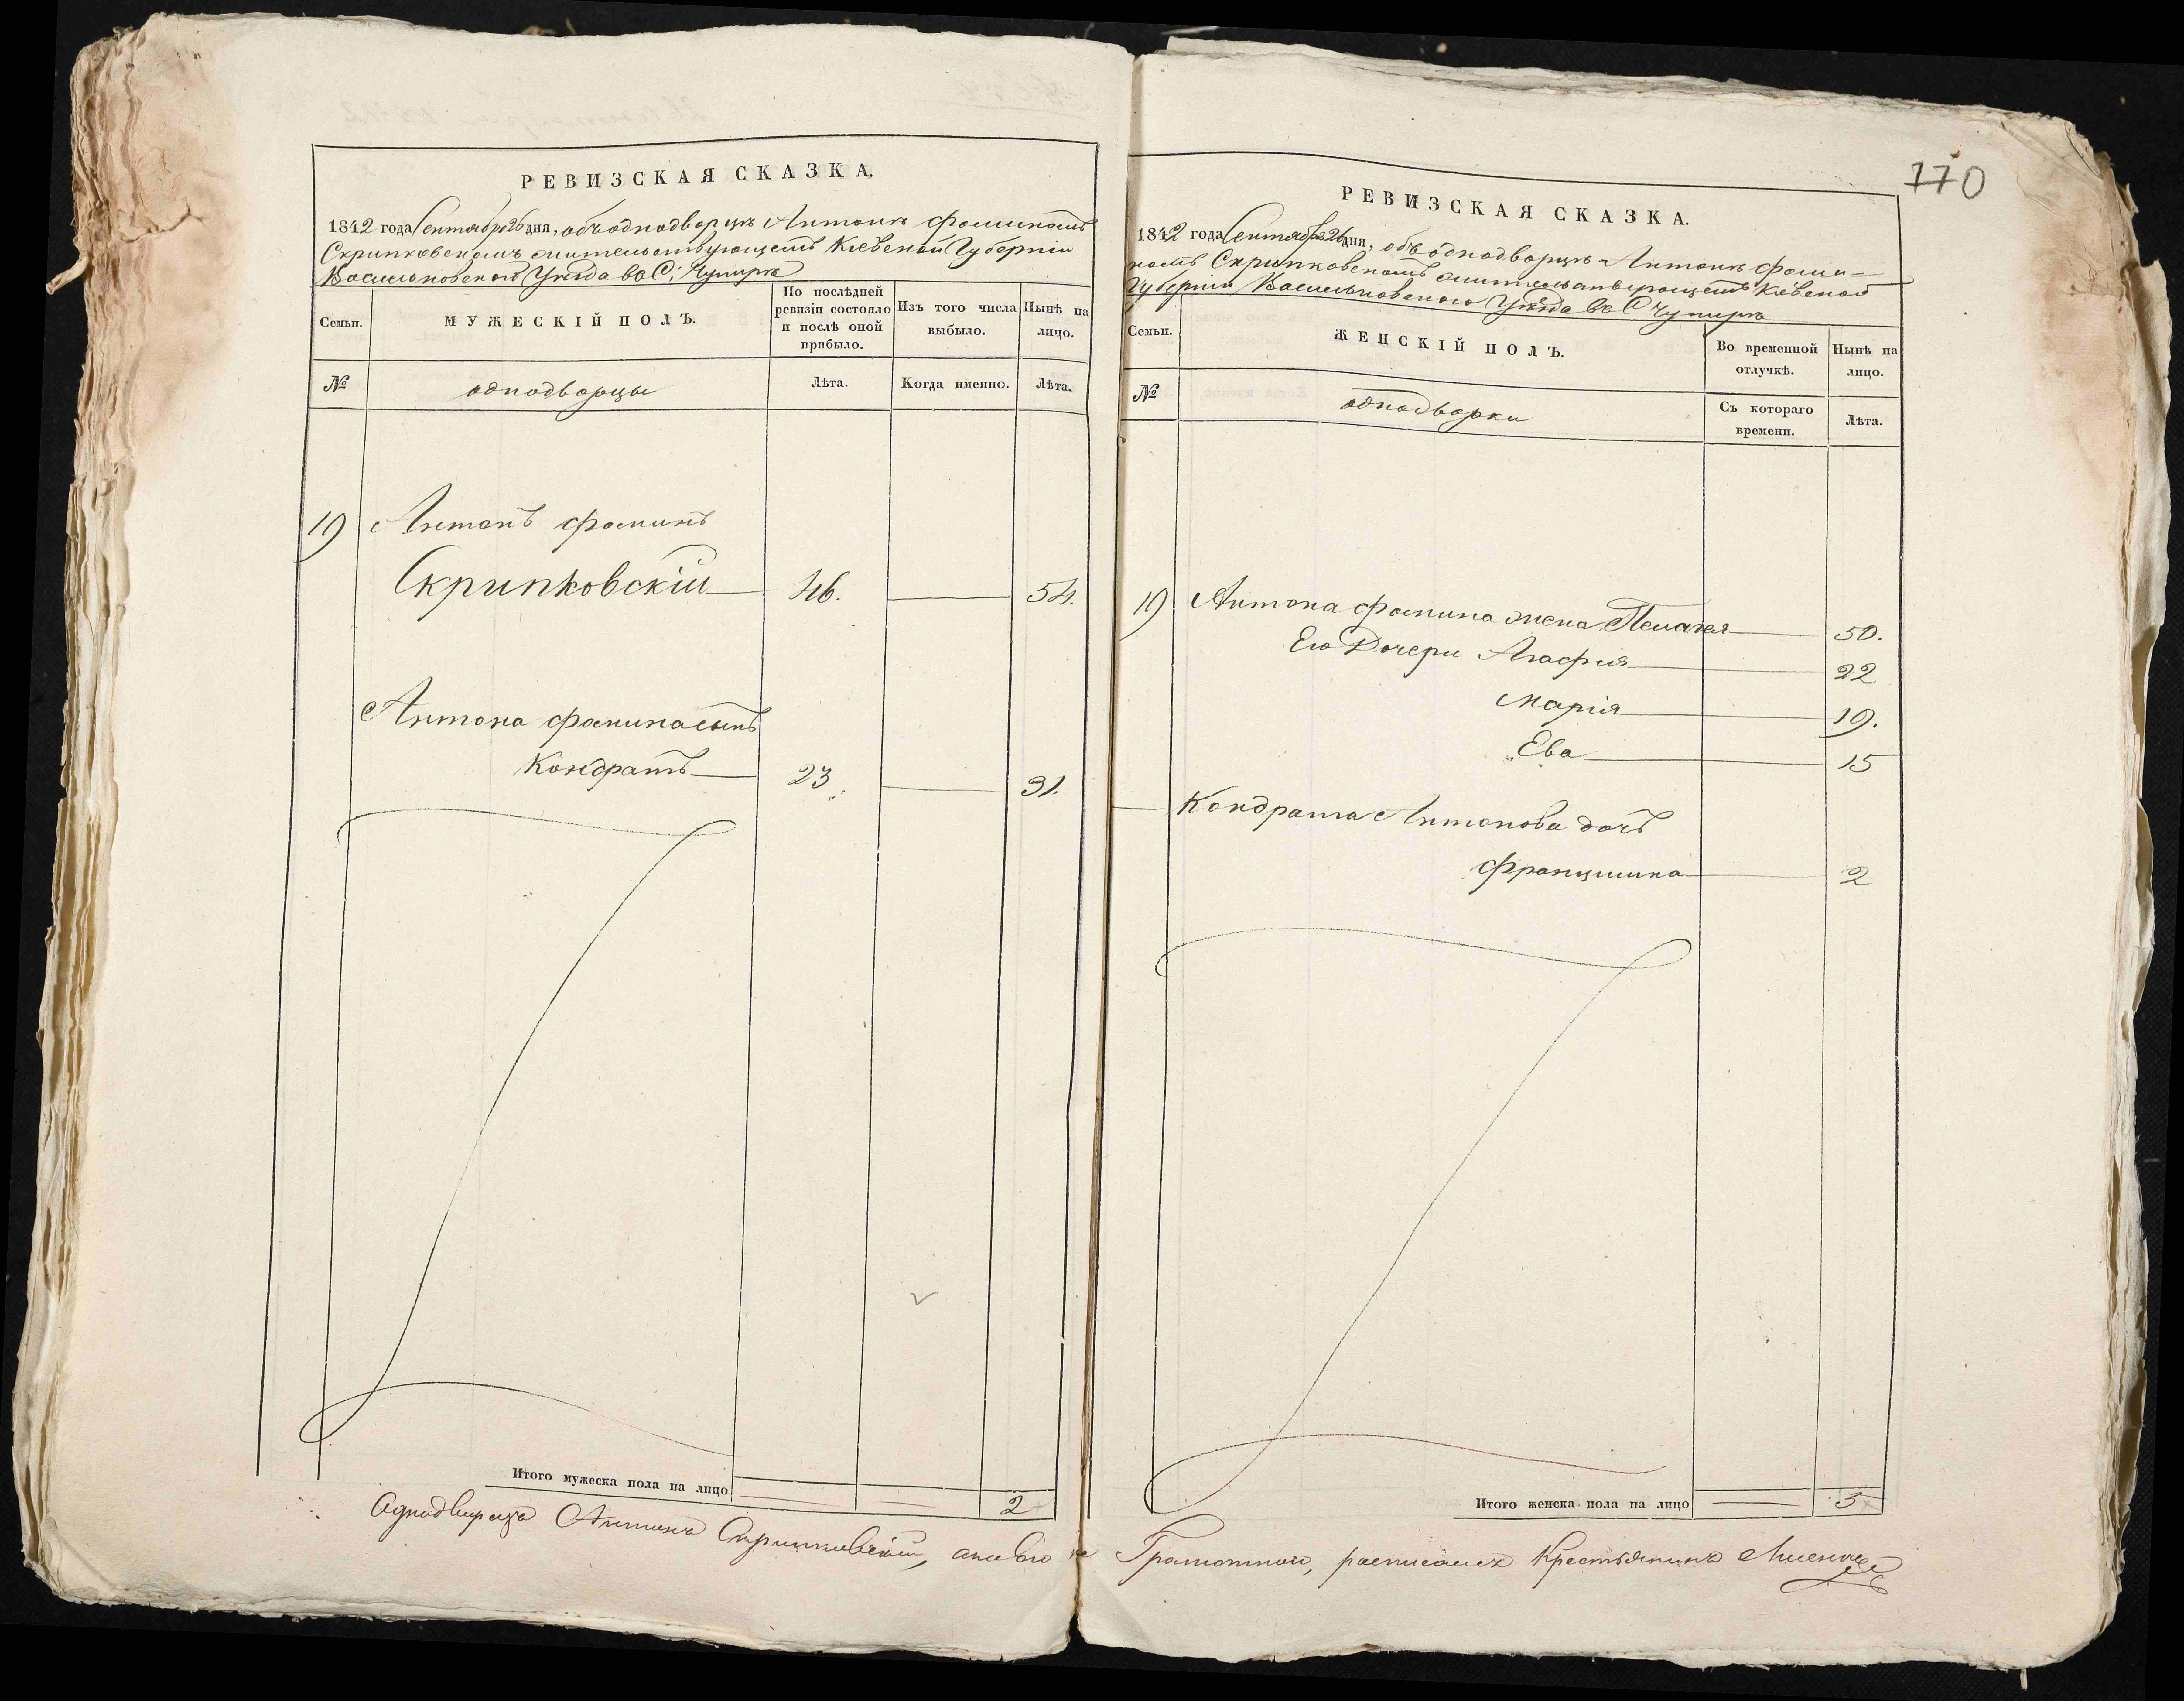 РЕВИЗСКАЯ СКАЗКА.
1842 года Сентября 26 дня, объ однодворцѣ Антонѣ Фоминомъ
Скрипковскомъ жительствующемъ Кіевской Губерніи
Васильковскаго Уѣзда въ С: Чупирѣ
Семьи.
МУЖЕСКІЙ ПОЛЪ.
По послѣдней ревизіи состояло и послѣ оной прибыло.
Изъ того числа выбыло.
Нынѣ на лицо.
№
однодворцы
Лѣта.
Когда именно.
Лѣта.
19 Антонъ Фоминъ
Скрипковскій 46. 54.
Антона Фомина сынъ
Кондратъ 23 31.
Итого мужеска пола на лицо 2
Антонъ Скрипковскій, а
770
РЕВИЗСКАЯ СКАЗКА.
1842 года Сентября 26 дня, объ однодворцѣ Антонѣ Фоми-
номъ Скрипковскомъ жительствующемъ Кіевской
Губерніи Васильковскаго Уѣзда въ С Чупирѣ
Семьи.
ЖЕНСКІЙ ПОЛЪ.
Во временной отлучкѣ.
Нынѣ на лицо.
№
однодворки
Съ котораго времени.
Лѣта.
19 Антона Фомина жена Пелагея 50.
Его Дочери Агафія 22
Марія 19.
Ева 15
Кондрата Антонова дочь
Францишка 2
Итого женска пола на лицо 5
Грамотного, росписался Крестьянинъ